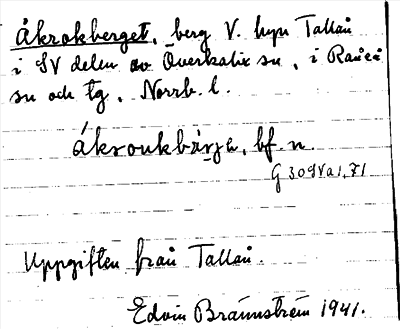 Åkrokberget, berg V. hyn Tallån
i SV delen av Överkalix sn, i Råneå
sn och tg, Norrb. l.
åkroukbärje, bf. n.
Uppgiften från Tallån.
Edvin Brännström 1941.